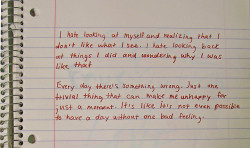 I hate looking at myself and realizing that I
don't like what I see. I hate looking back
at things I did and wondering why I was
like that
Every day there's something wrong. Just one
trivial thing that can make me unhappy for
just a moment. It's like it's not even possible
to have a day without one bad feeling.